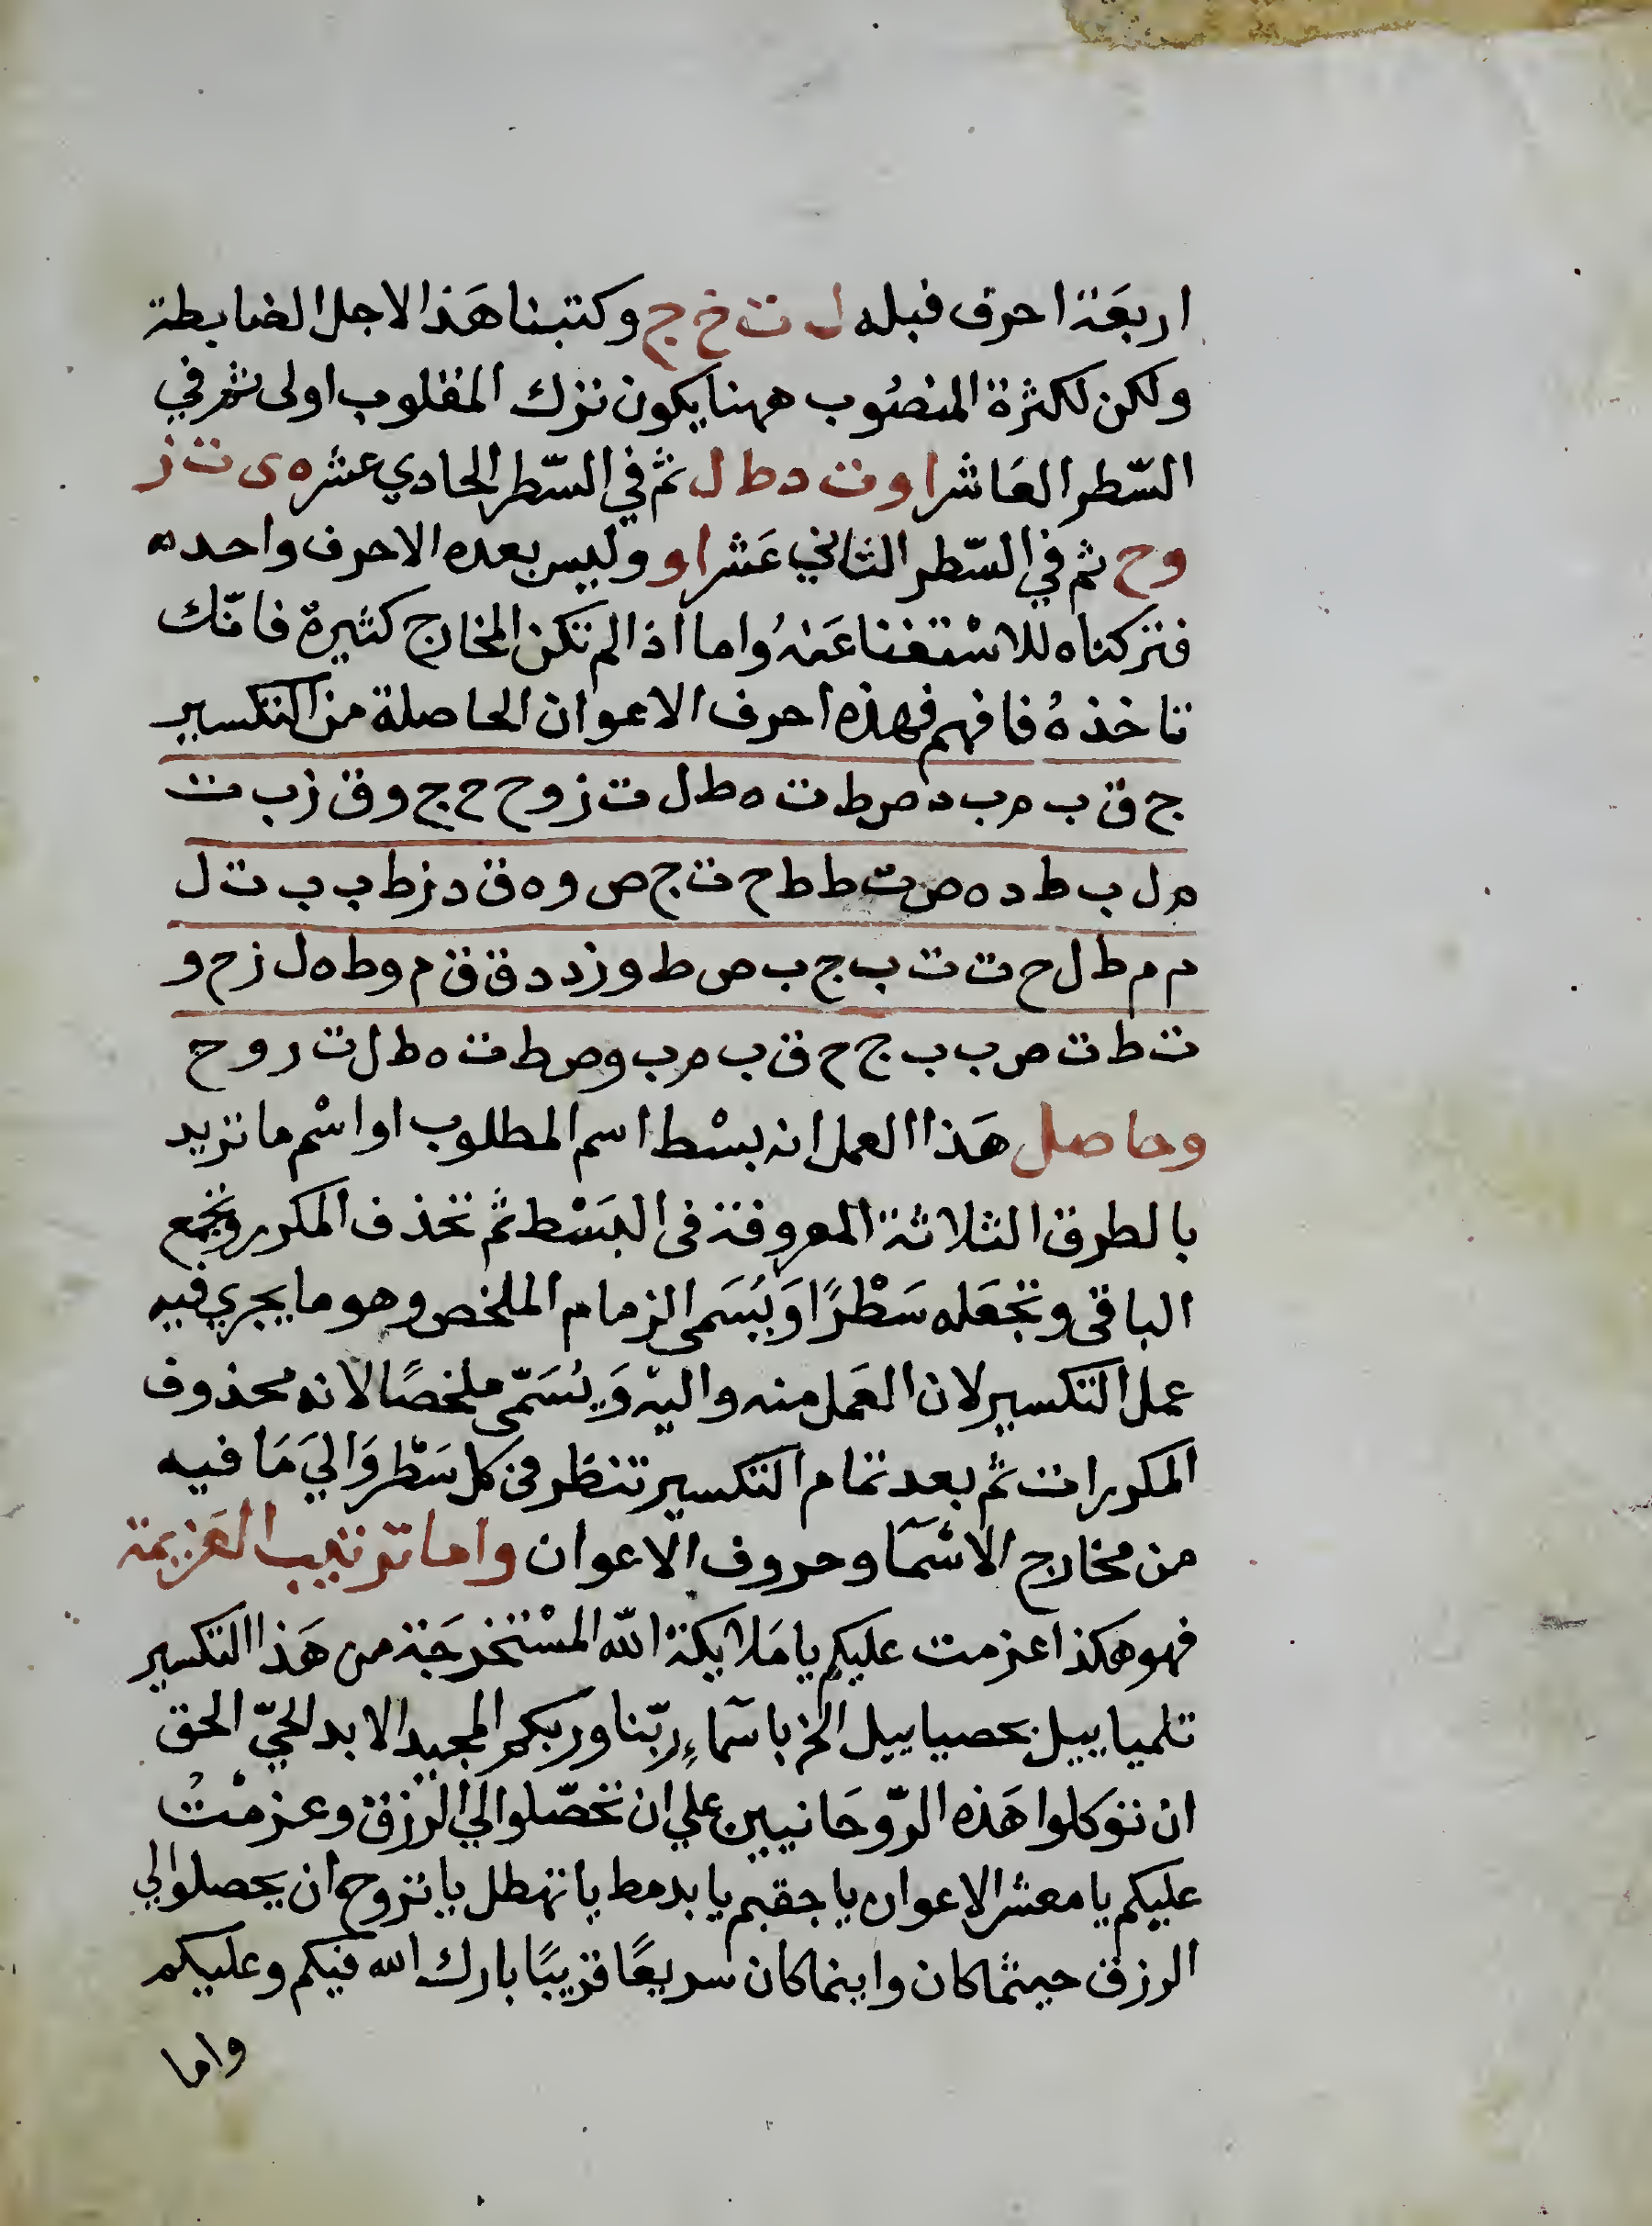 اربعة احرف قبله ل ت خ ج وكتبنا هَذا لاجل الضابطة
ولكن لكثرة المنصُوب ههنا يكون ترك المقلوب اولى ثم في
السّطر العَاشر ا و ت د ط ل ثم في السّطر الحادي عشر ه ى ت ز
و ح ثم في السّطر الثاني عَشر ا و وليس بعده الاحرف واحده
فتركناه للاسْتغنا عَنهُ واما اذا لم تكن المخارج كثيرةٌ فانّك
تاخذهُ فافهم فهذه احرف الاعوان الحاصلة من التكسير
ج ق ب م ب د م ط ت ه ط ل ت ز و ح ح ج و ق ز ب ت
م ل ب ط د ه ص ت ط ط ح ت ج ص و ه ق د ز ط ب ب ت ل
م م ط ل ح ت ت ب ج ب ص ط و ز د د ق ق م و ط ه ل ز ح و
ت ط ت ص ب ب ج ح ق ب م ب و ص ط ت ه ط ل ت ر و ح
وحاصل هَذا العمل انه بسْط اسم المطلوب او اسْم ما تريد
بالطرق الثلاثة المعروفة فى البَسْط ثم تحذف المكرر وتجمع
الباقى وتجعَله سَطْرًا وَيُسَمى الزمام الملخص وهو ما يجري فيه
عمل التكسير لان العَمل منه واليْه وَيُسَمّى ملخصًا لانه محذوف
المكررات ثم بعد تمام التكسير تنظر فى كل سَطْر وَاليَ مَا فيه
من مخارج الاسْمآ وحروف الاعوان واما ترتيب العَزيمة
فهو هكذا عزمت عليكم يا مَلايكة الله المسْتخرجَة من هَذا التكسير
تلمياييل بحصياييل الخ باسمآءِ ربّنا وربكم المجيد الابد الحيّ الحق
ان توَكلوا هَذه الرّوحَانيين علي ان تحصّلوا الي الرزق وعزمْتُ
عليكم يا معشر الاعوان يا جقبم يا بدمط يا تهطل يا تزوح ان يحصلوا لي
الرزق حيثما كان واينما كان سريعًا قريبًا بارك الله فيكم وعليكم
واما